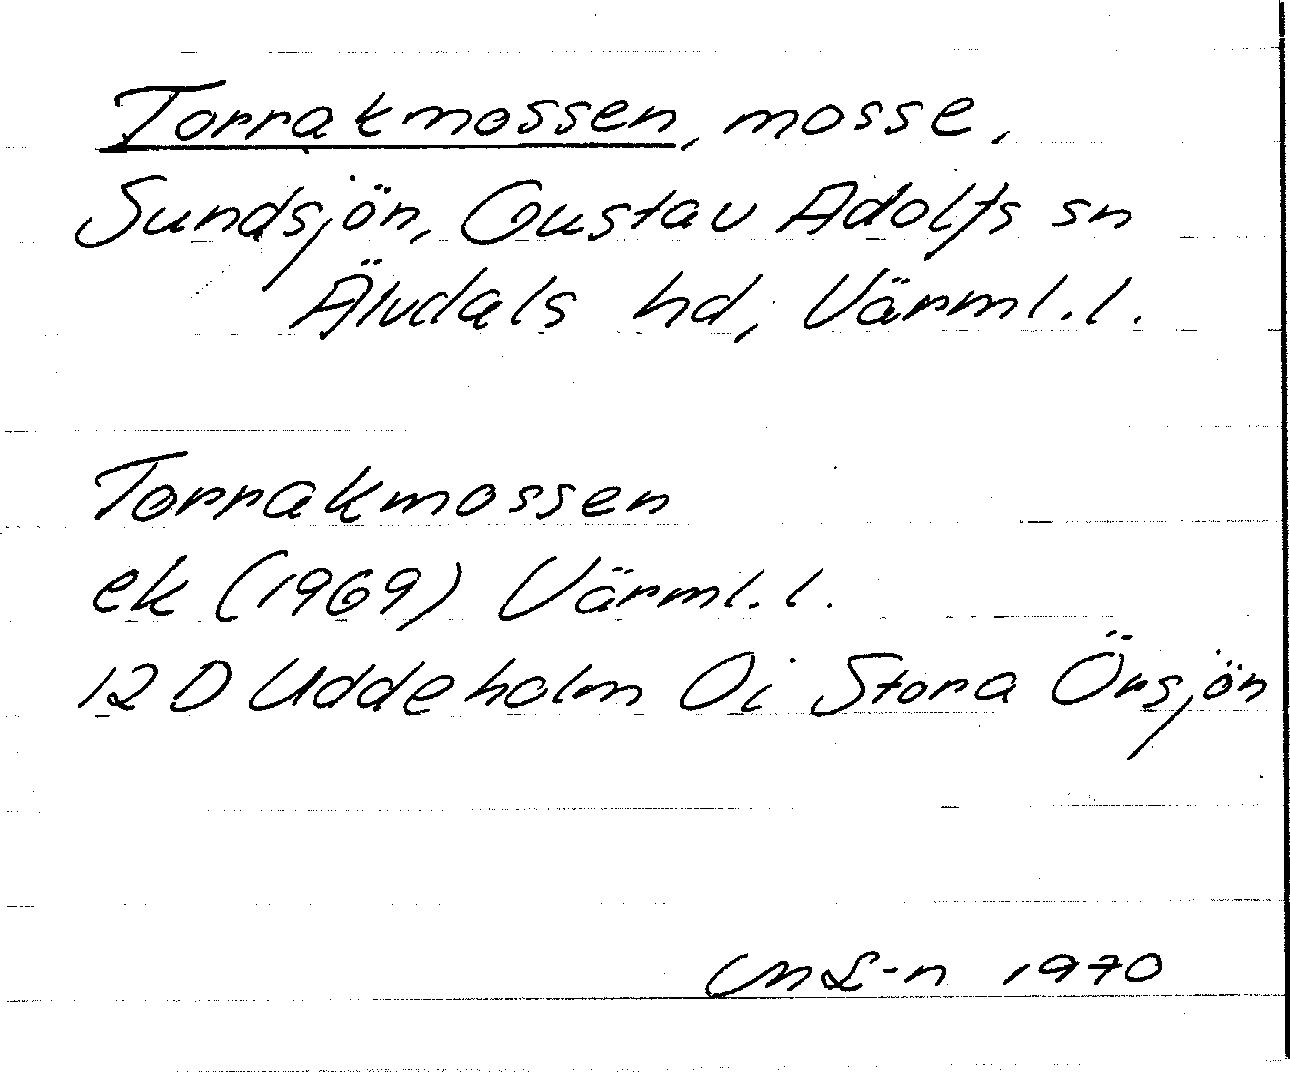 Torrakmossen, mosse,
Sundsjön, Gustav Adolfs sn
Älvdals hd, Värml. l.
Torrakmossen
ek (1969) Värml. l.
12 D Uddeholm 0i Stora Örsjön
ML-n 1970